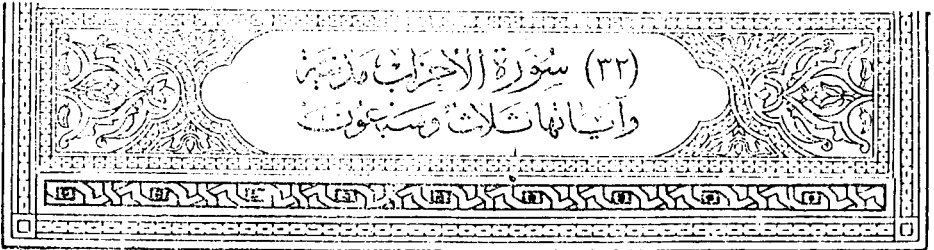 (٣٢) سُورَة الأحزاب مدنية
وآياتها ثلاث وسبعون